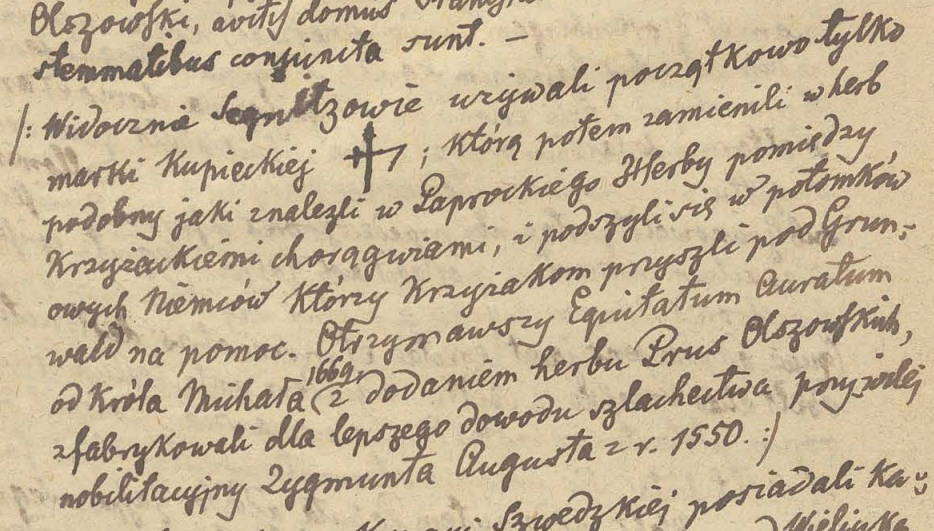 Olszowski, aviti domus
stemmatibus conjuncta sunt. —
/: Widocznie używali początkowo tylko
marki Kupieckiej ; którą potem zamienili w herb
podobny jaki znalezli w Paprockiego Herby pomiędzy
Krzyżackiemi chorągwiami, i podszyli się w potomków
owych Niemców którzy Krzyżakom przyszli pod Grun-
wald na pomoc. Otrzymawszy Equitatum Auratum
od Króla Michała 1669 (z dodaniem herbu Prus Olszowskich,
zfabrykowali dla lepszego dowodu szlachectwa przywilej
nobilitacyjny Zygmunta Augusta z r. 1550. :/
Szwedzkiej posiadali Ka-